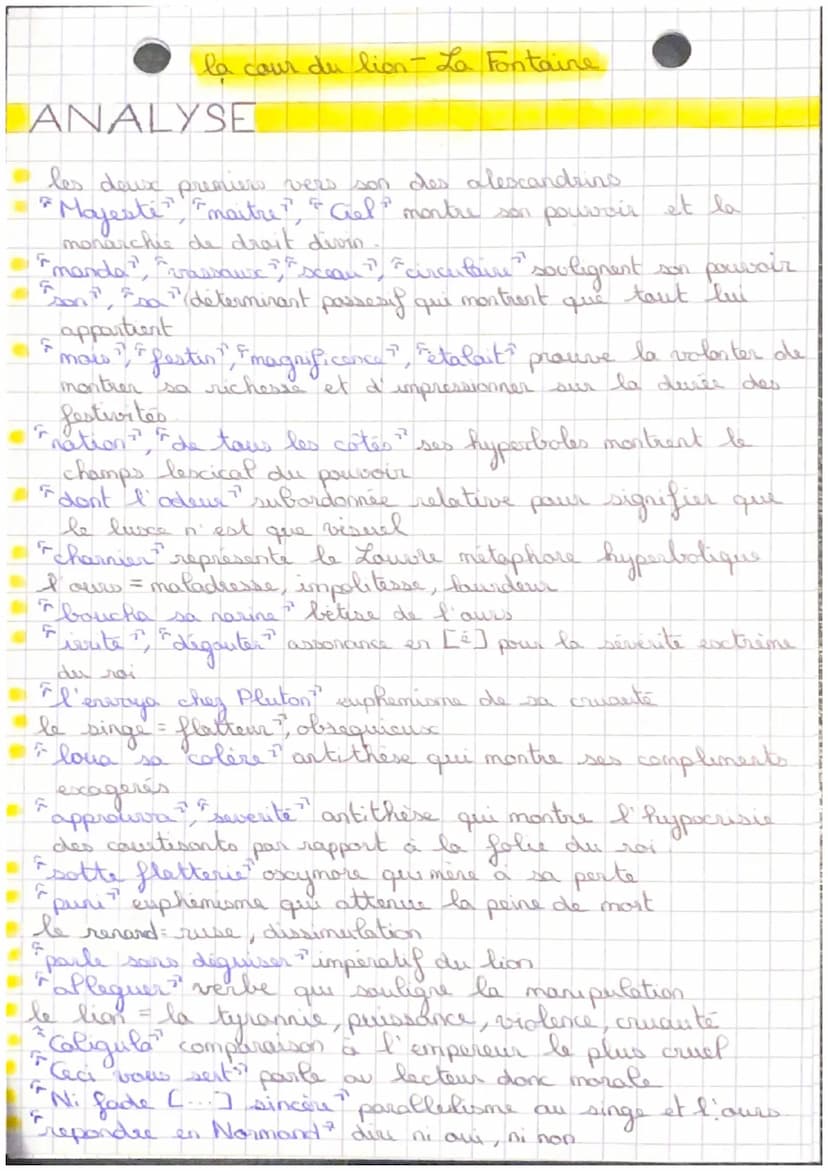 la cour du lion - La Fontaine
ANALYSE
les deux premiers vers son des alexcandrins
"Majesté", "maitre", "Ciel" montre son pouvoir et la
monarchie de droit divin.
"manda", "vassaux", "sceau", "circulaire" soulignent son pouvoir
"son", "sa" (déterminant possesif qui montrent que tout lui
appartient
"mois", "festin", "magnificence", "étalait" prouve la volonter de
montrer sa richesse et d'impressionner sur la durée des
festivités
"nation", "de tous les côtés" ses hyperboles montrent le
champs lexcical du pouvoir
"dont l'odeur" subordonnée relative pour signifier que
le luxce n'est que visuel
"charnier" représente le Louvre métaphore hyperbolique
l'ours = maladresse, impolitesse, lourdeur
"boucha sa narine" bêtise de l'ours
"irrité", "dégouter" assonance en [é] pour la sévérité exctrème
du roi
"l'envoya chez Pluton" euphémisme de sa cruauté
le singe = flatteur, obsequieux
"loua sa colère" antithèse qui montre ses compliments
exagerés
"approuva", "severité" antithèse qui montre l'hypocrisie
des courtisants par rapport à la folie du roi
"sotte flatterie" oxcymore qui mène à sa perte
"puni" euphémisme qui attenue la peine de mort
le renard = ruse, dissimulation
"parle sans déguiser" impératif du lion
"alleguer" verbe qui souligne la manipulation
le lion = la tyrannie, puissance, violence, cruauté
"Caligula" comparaison à l'empereur le plus cruel
"Ceci vous sert" parle au lecteur donc morale
"Ni fade [...] sincère" parallélisme au singe et l'ours
"repondre en Normand" dire ni oui, ni non